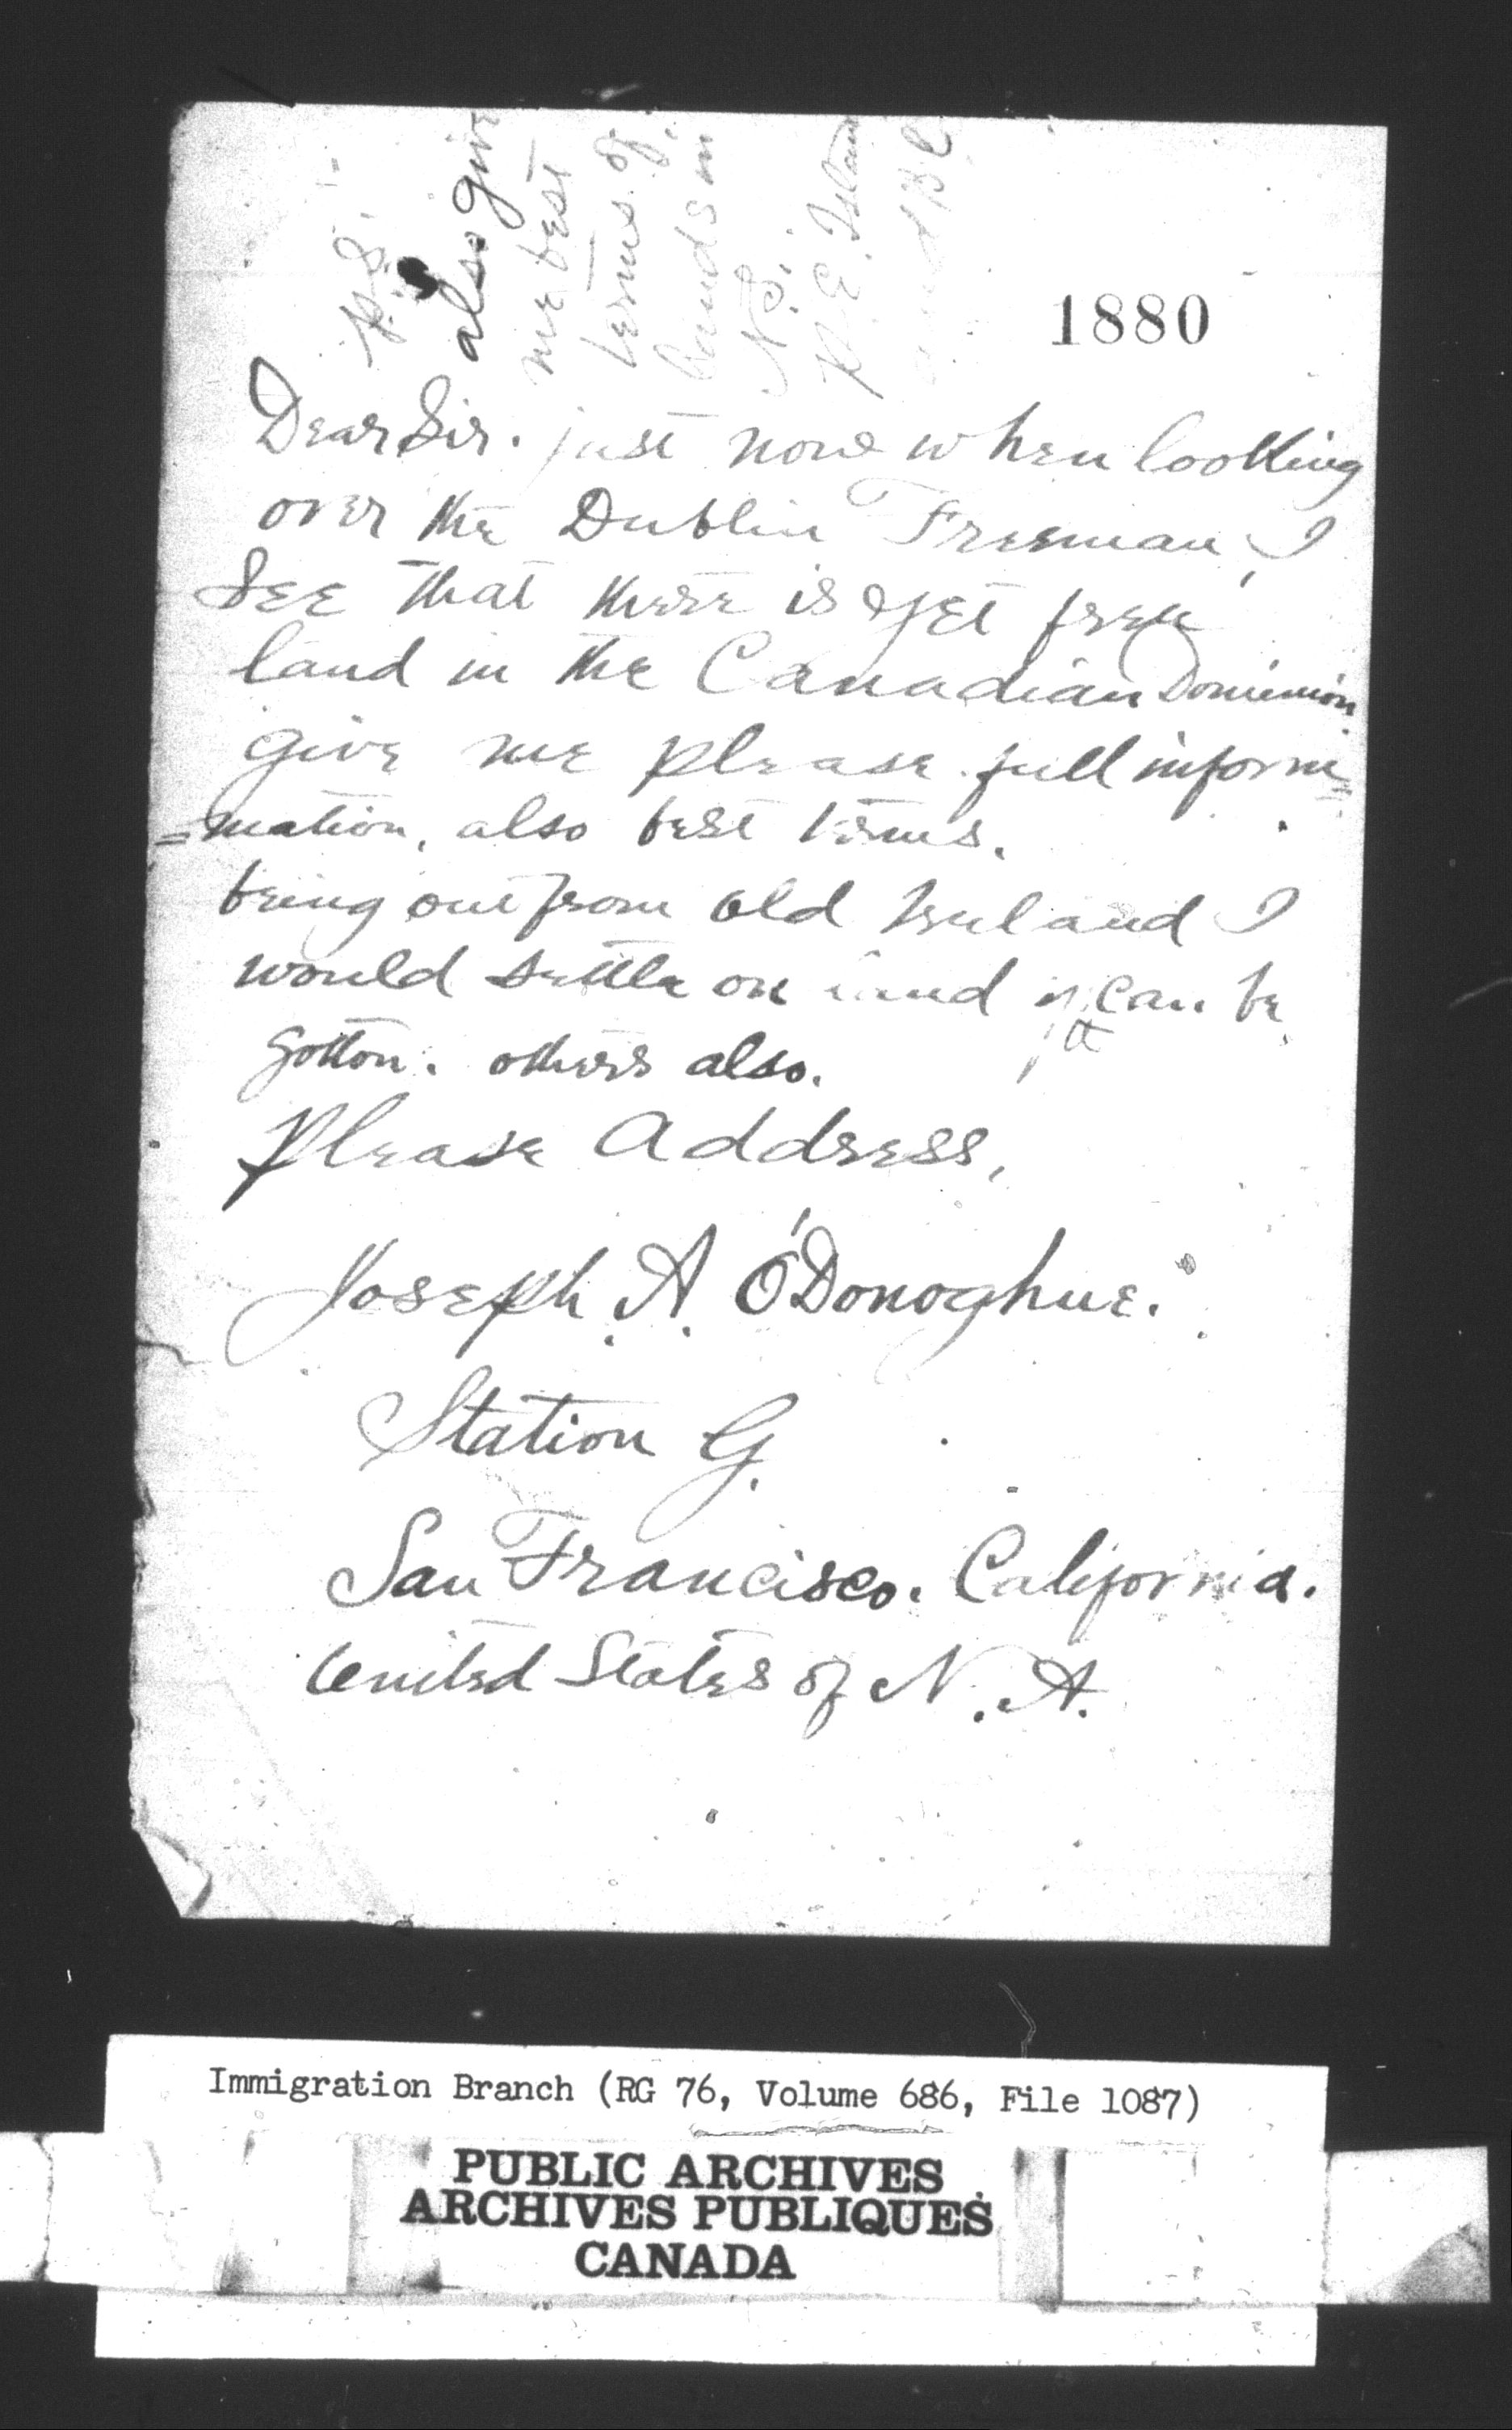 P.S.
also give
me best
terms of
lands in
N.S.
P.E. Islan
and B C
1880
Dear Sir. just now when looking
over the Dublin Freeman, I
See that there is yet free
land in the Canadian Dominion
give me please full inform
=mation, also best terms.
being out from old Ireland I
would settle on land if it can be
gotton. others also.
Please Address,
Joseph. A. O'Donoghue.
Station G.
San Francisco. California.
United States of N. A.
Immigration Branch (RG 76, Volume 686, File 1087)
PUBLIC ARCHIVES
ARCHIVES PUBLIQUES
CANADA